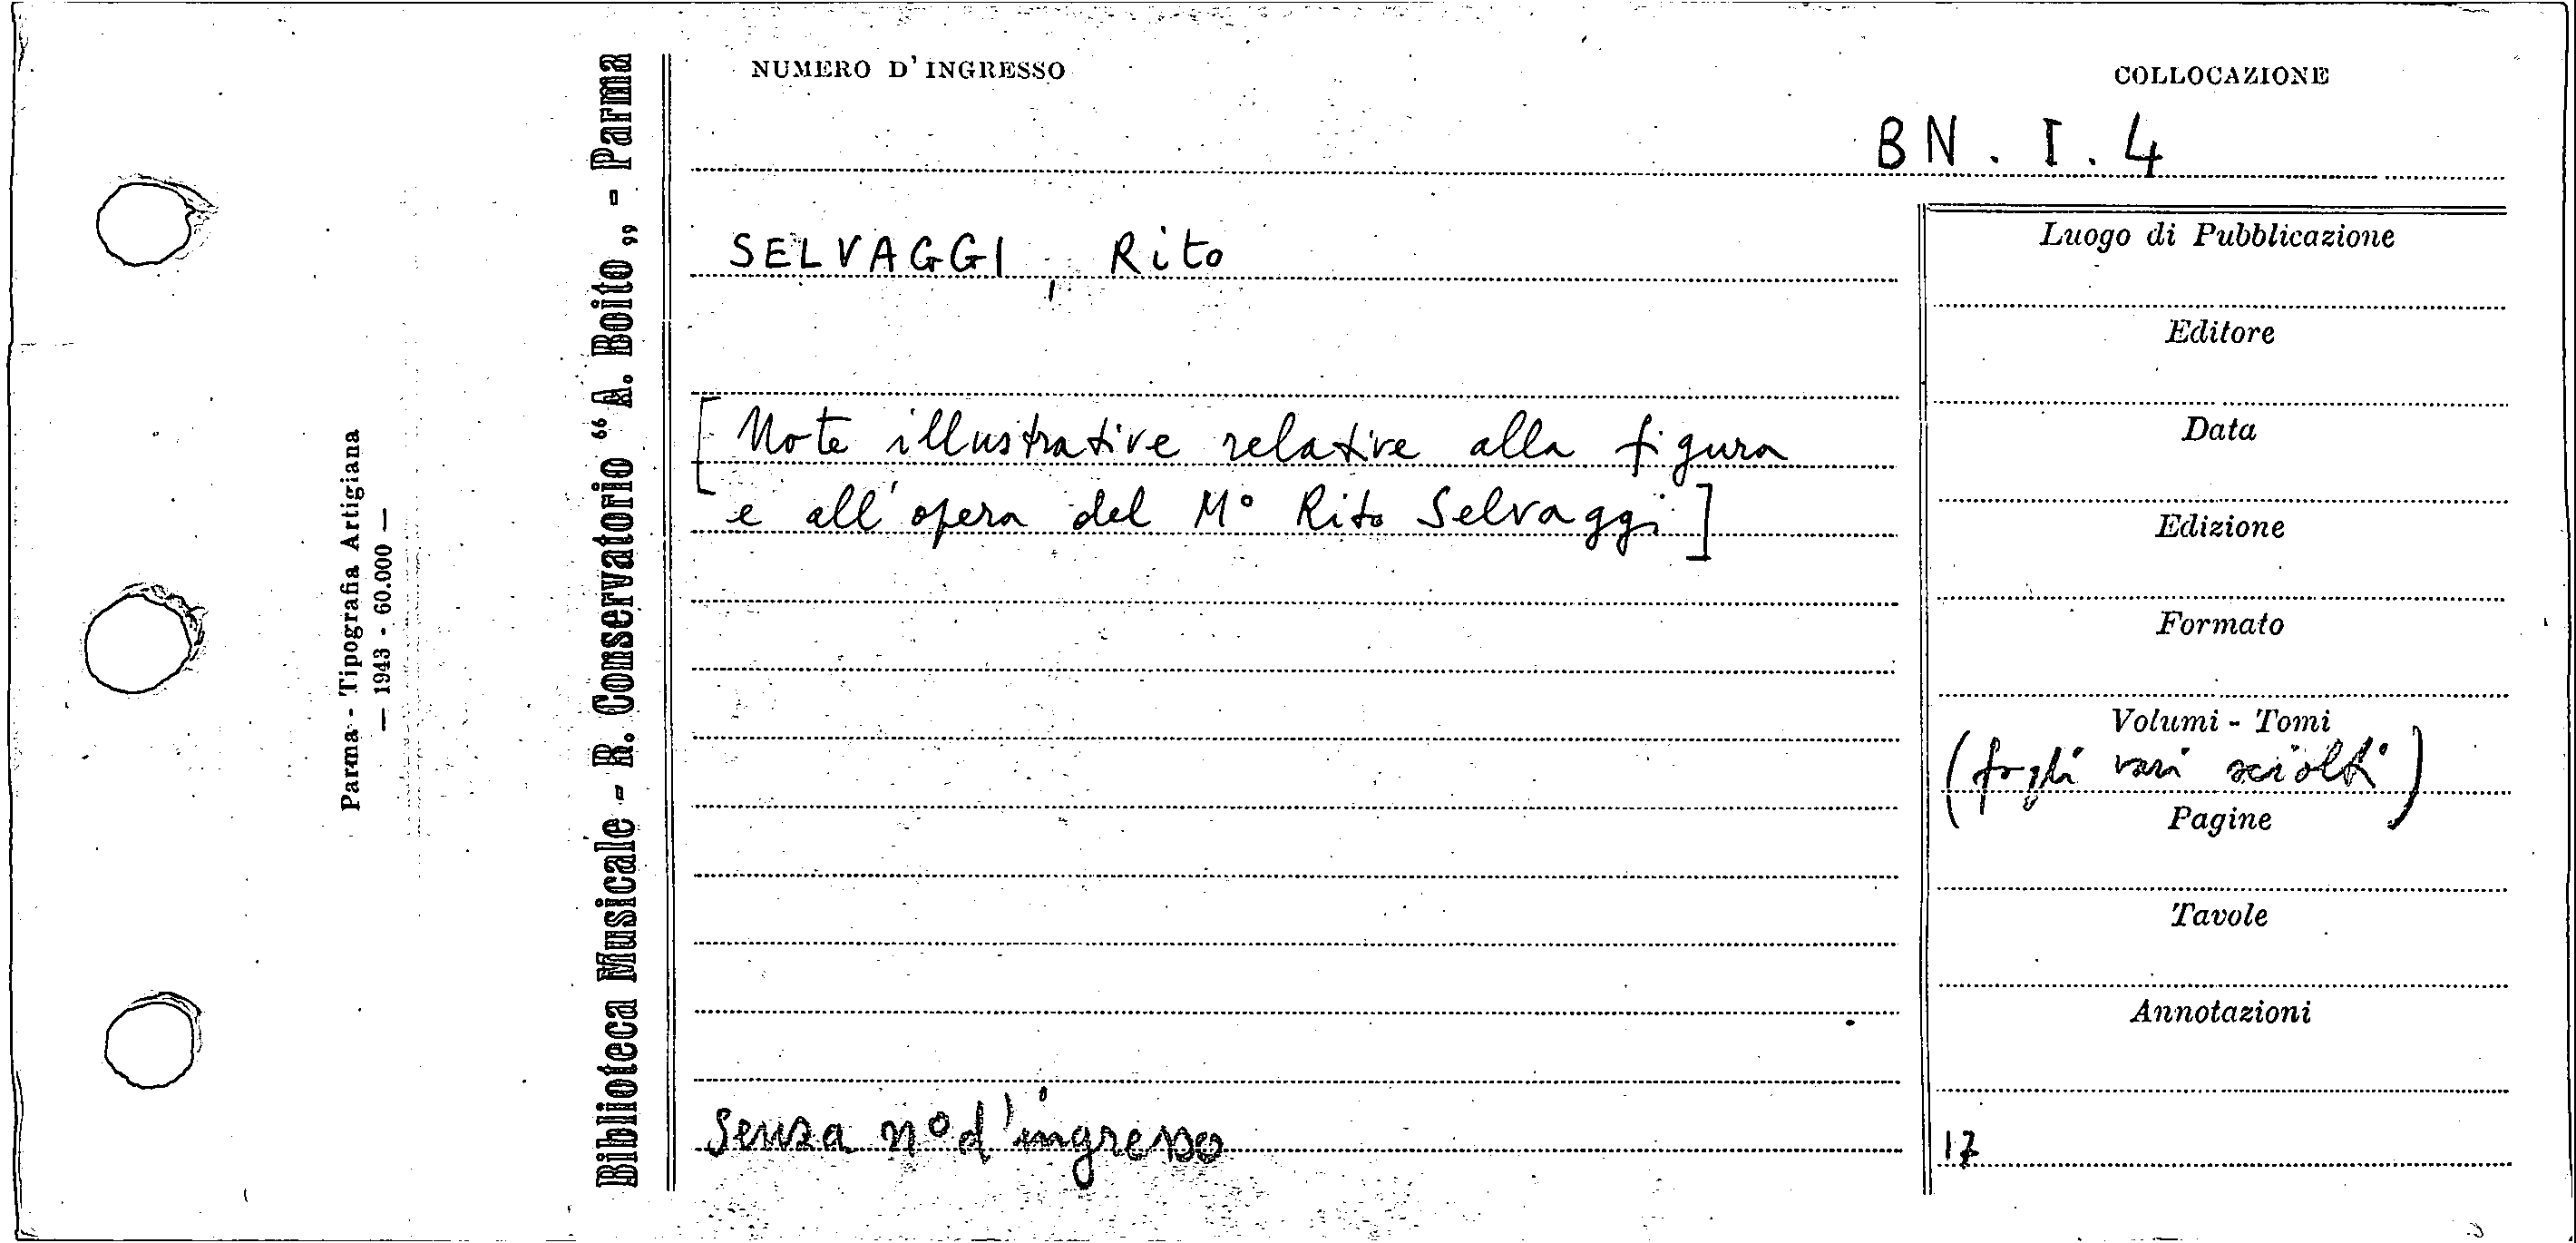 Parma - Tipografia Artigiana
— 1943 - 60.000 —
Biblioteca Musicale - R. Conservatorio “ A. Boito „ - Parma
NUMERO D' INGRESSO
COLLOCAZIONE
BN. I. 4
SELVAGGI, Rito
[Note illustrative relative alla figura
e all'opera del M° Rito Selvaggi]
Senza n° d'ingresso
Luogo di Pubblicazione
Editore
Data
Edizione
Formato
Volumi - Tomi
(fogli vari sciolti)
Pagine
Tavole
Annotazioni
17